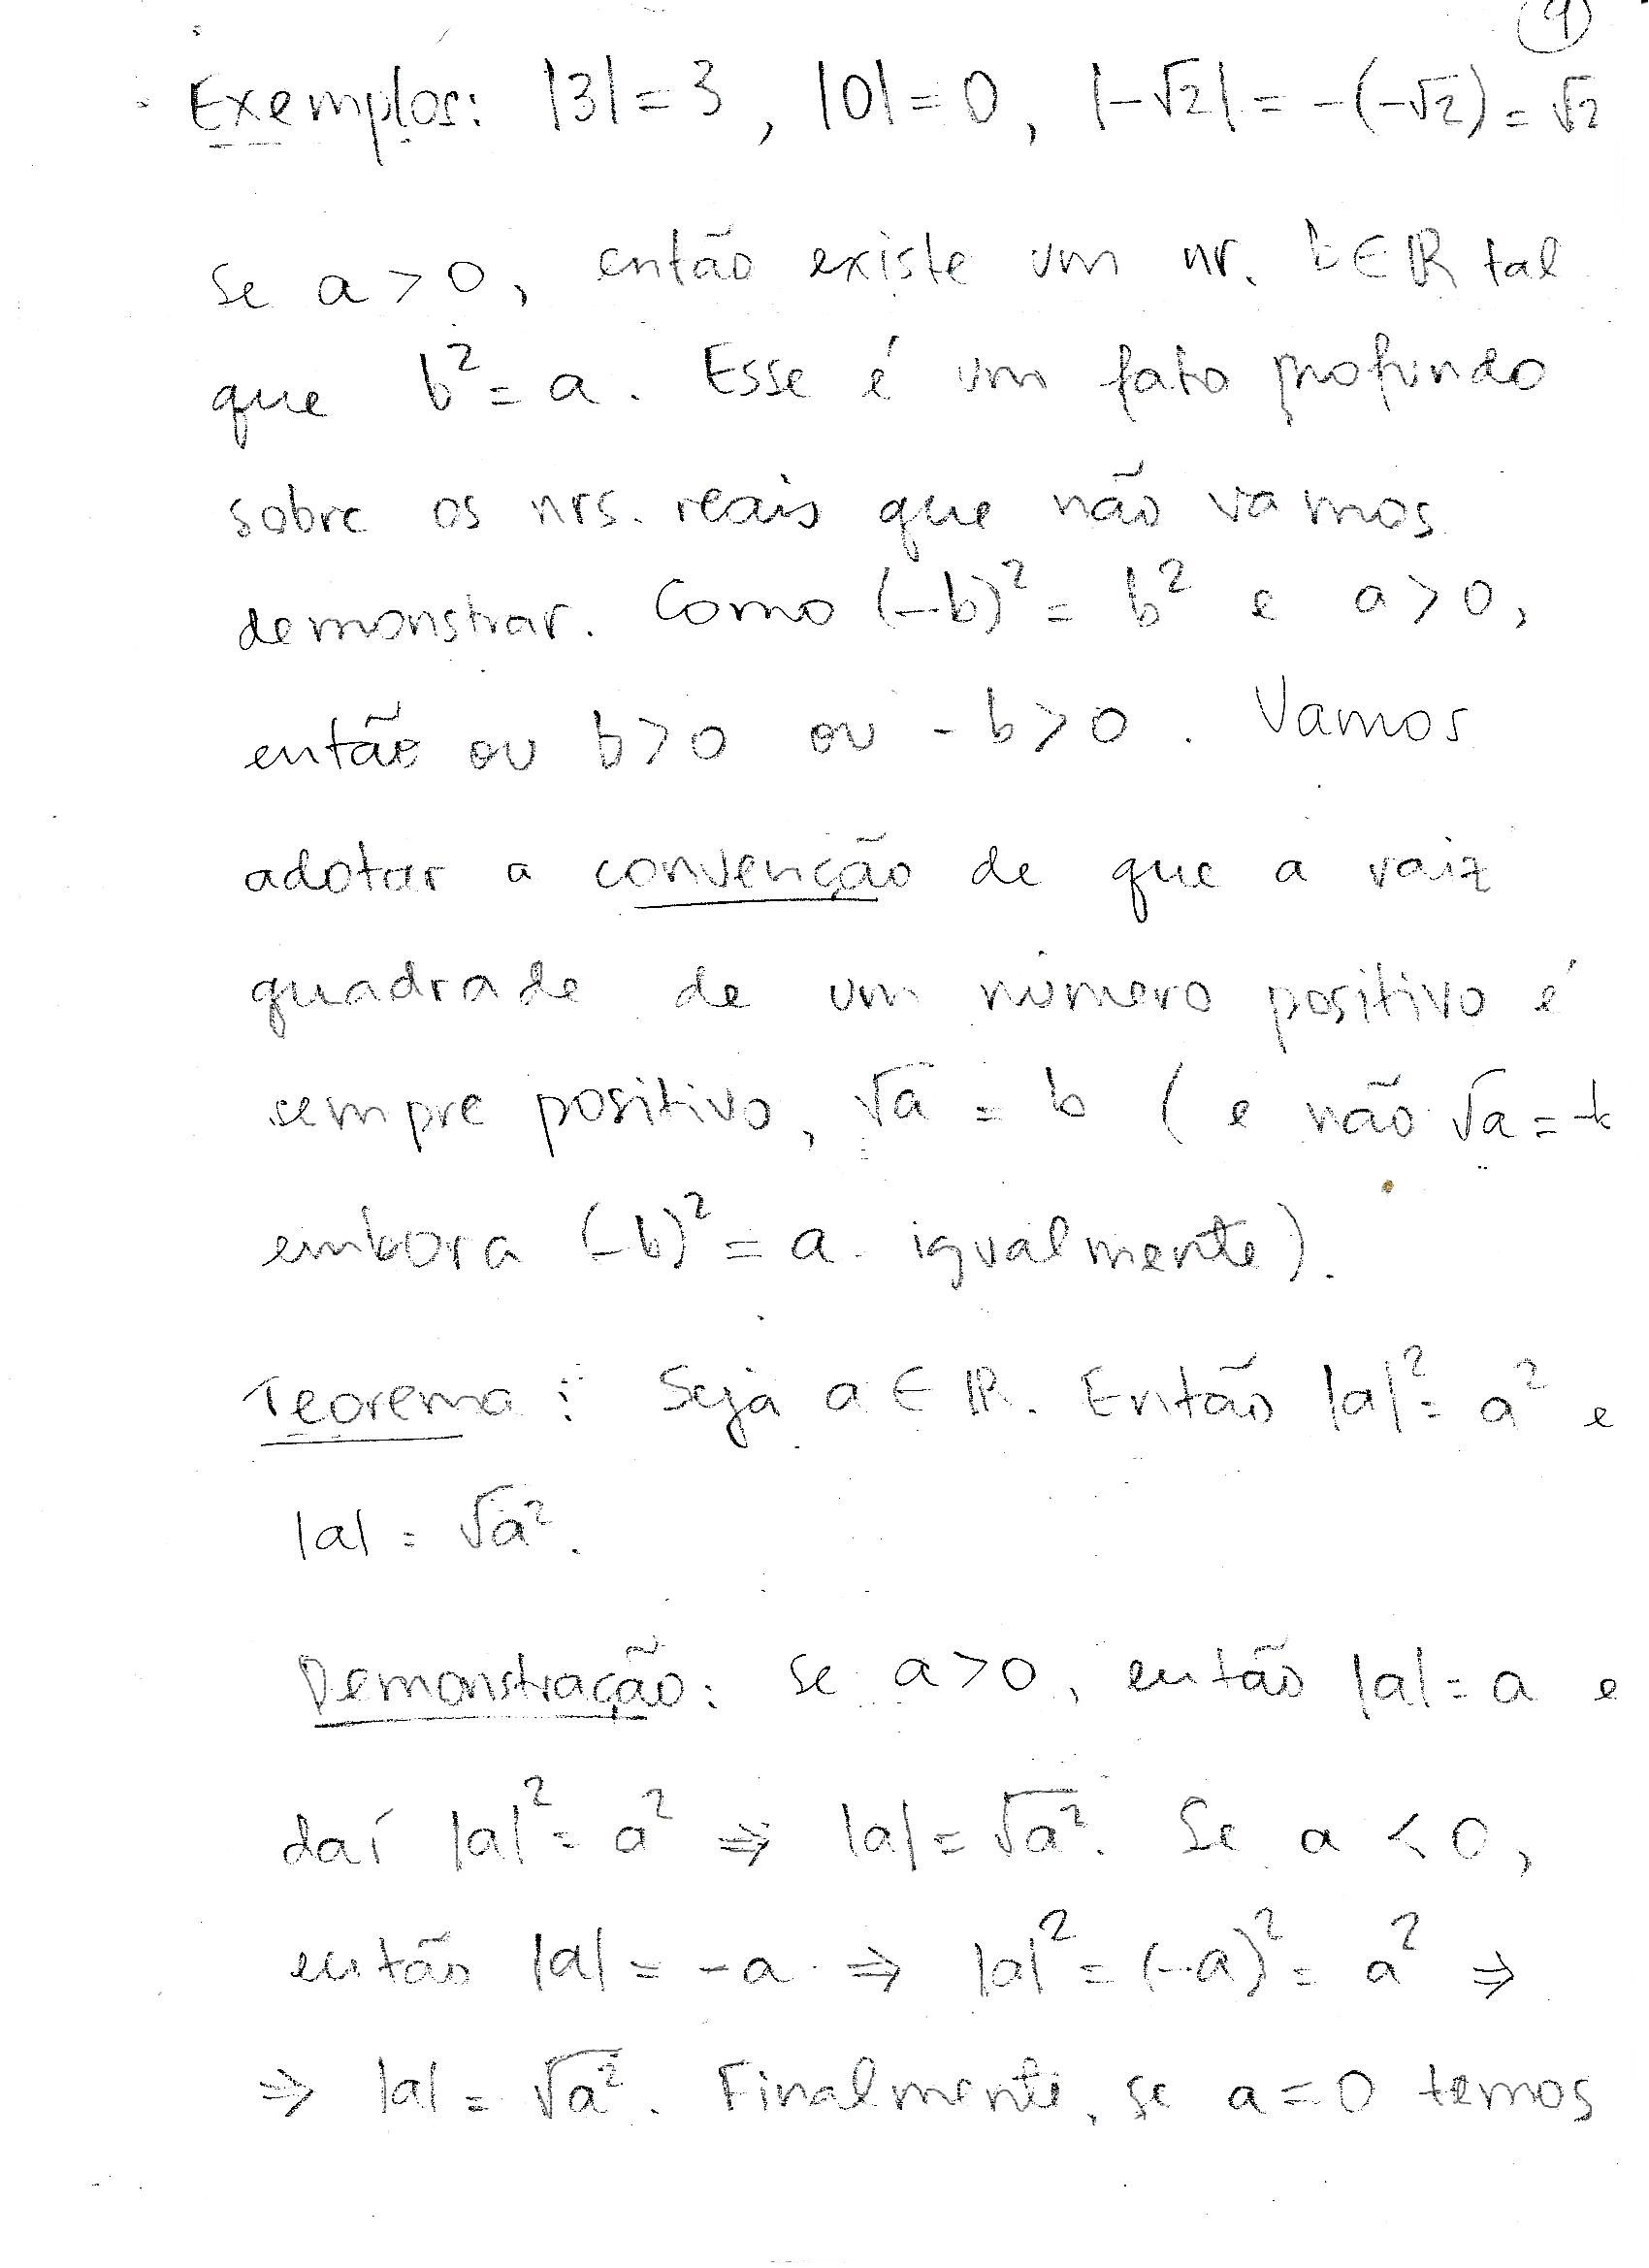 Exemplos: |3| = 3, |0| = 0, |-√2| = -(-√2) = √2
Se a > 0, então existe um nr. b ∈ ℝ tal
que b² = a. Esse é um fato profundo
sobre os nrs. reais que não vamos
demonstrar. Como (-b)² = b² e a > 0,
então ou b > 0 ou -b > 0. Vamos
adotar a convenção de que a raiz
quadrade de um número positivo é
sempre positivo, √a = b (e não √a = -
embora (-b)² = a igualmente).
Teorema: Seja a ∈ ℝ. Então |a|² = a² e
|a| = √a².
Demonstração: Se a > 0, então |a| = a e
daí |a|² = a² ⇒ |a| = √a². Se a < 0,
então |a| = -a ⇒ |a|² = (-a)² = a² ⇒
⇒ |a| = √a². Finalmente, se a = 0 temos